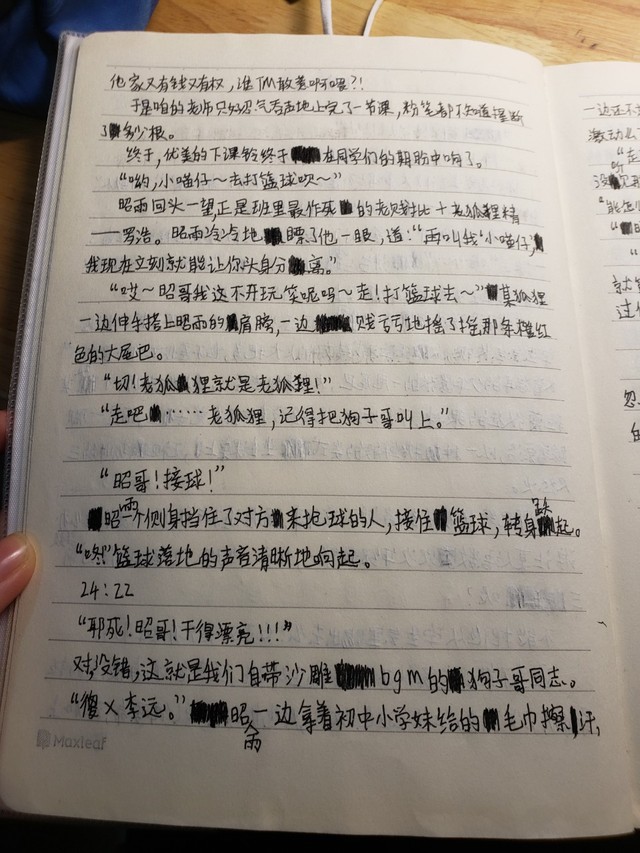 他家又有钱又有权，谁TM敢惹啊喂？！
于是咱的老师只好忍气吞声地上完了一节课，粉笔都不知道握断
了多少根。
终于，优美的下课铃终于在同学们的期盼中响了。
“哟，小喵仔～去打篮球呗～”
昭雨回头一望正是班里最作死的老对比＋老狐狸精
——罗浩。昭雨冷冷地瞟了他一眼，道：“再叫我‘小喵仔’，
我现在立刻就能让你头身分离。”
“哎～昭哥我这不开玩笑呢吗～走！打篮球去～”某狐狸
一边伸手搭上昭雨的肩膀，一边贱兮兮地摇了摇那条橙红
色的大尾巴。
“切！老狐狸就是老狐狸！”
“走吧……老狐狸，记得把狗子哥叫上。”
“昭哥！接球！”
昭雨一个侧身挡住了对方来抢球的人，接住篮球，转身跃起。
“咚”篮球落地的声音清晰地响起。
24：22
“耶死！昭哥！干得漂亮！！！”
对，没错，这就是我们自带沙雕bgm的狗子哥同志。
“傻X李远。”昭雨一边拿着初中小学妹给的毛巾擦汗，
Maxleaf
一边还不
激动么
“走